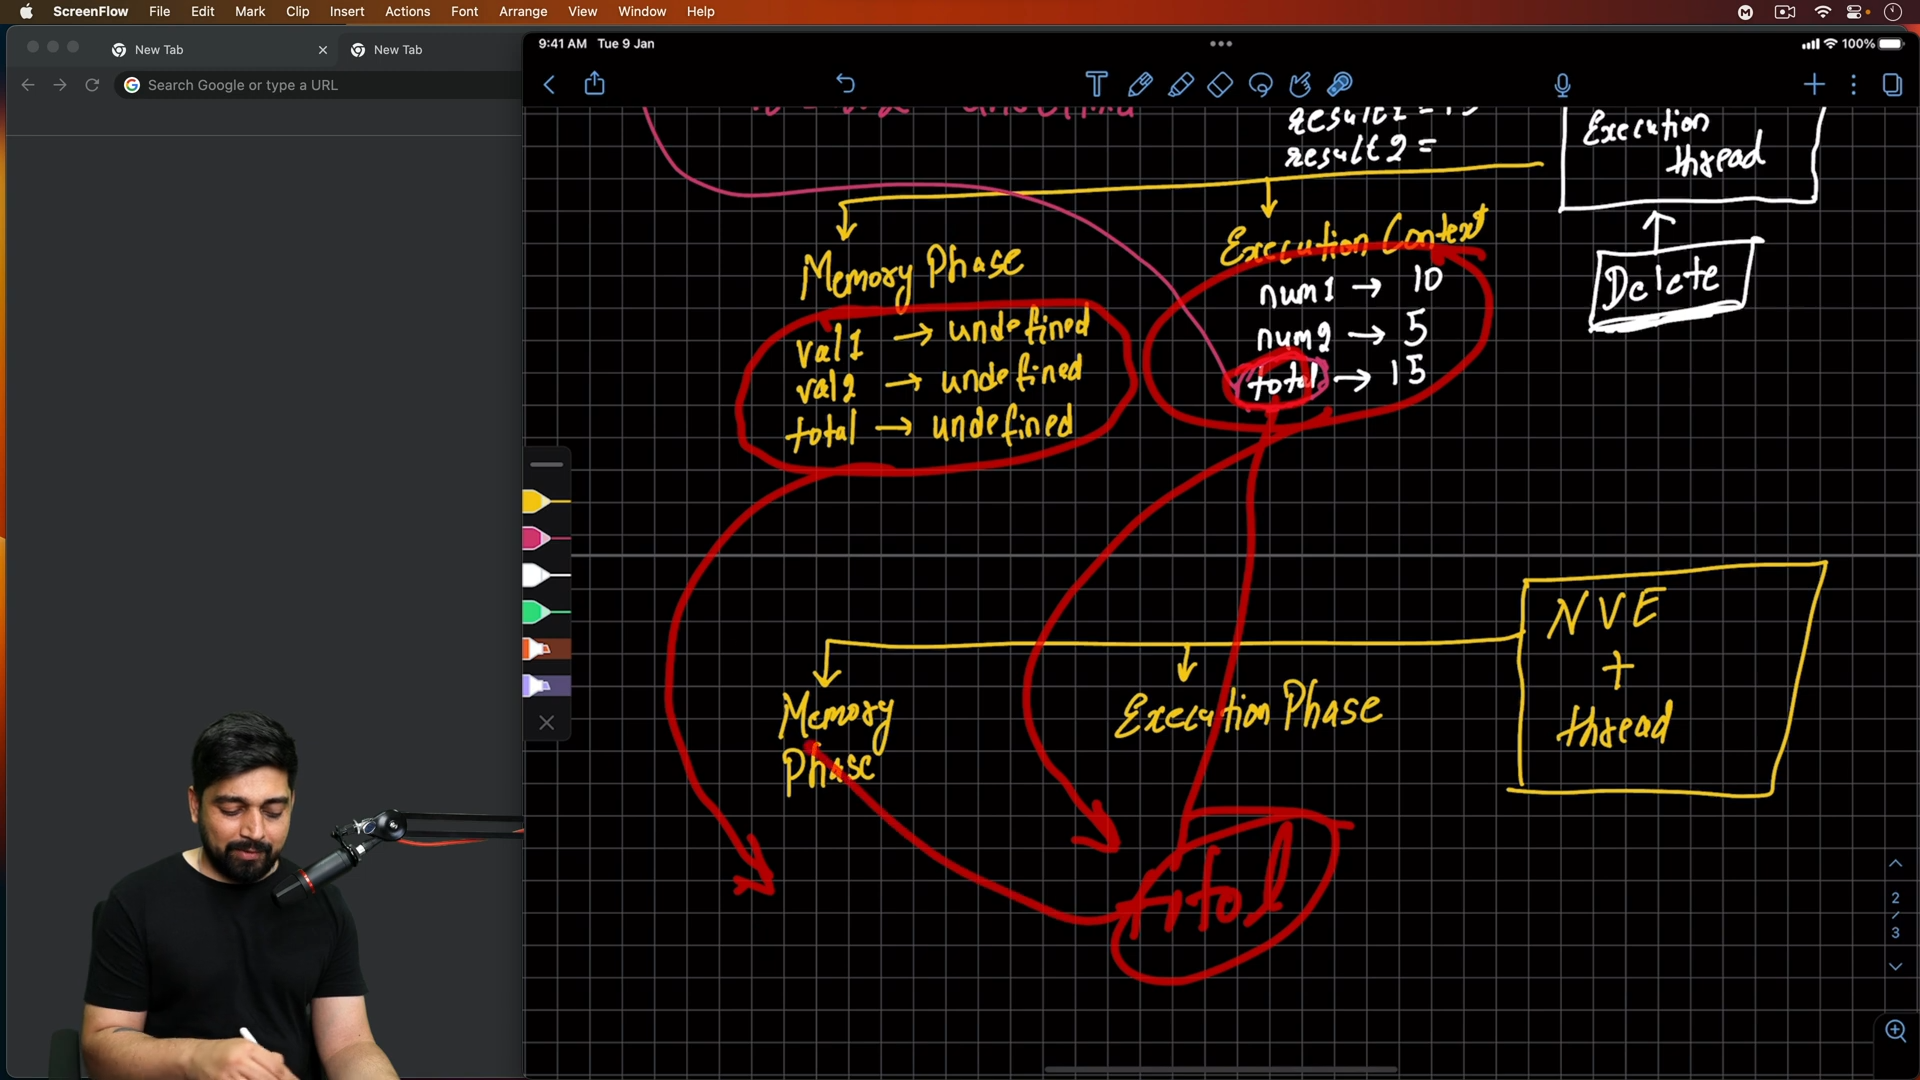 ScreenFlow File Edit Mark Clip Insert Actions Font Arrange View Window Help
New Tab
New Tab
Search Google or type a URL
9:41 AM Tue 9 Jan
100%
result2 =
Execution
thread
Delete
Memory Phase
val1 → undefined
val2 → undefined
total → undefined
Execution Context
num1 → 10
num2 → 5
total → 15
NVE
+
thread
Memory
Phase
Execution Phase
total
2
3